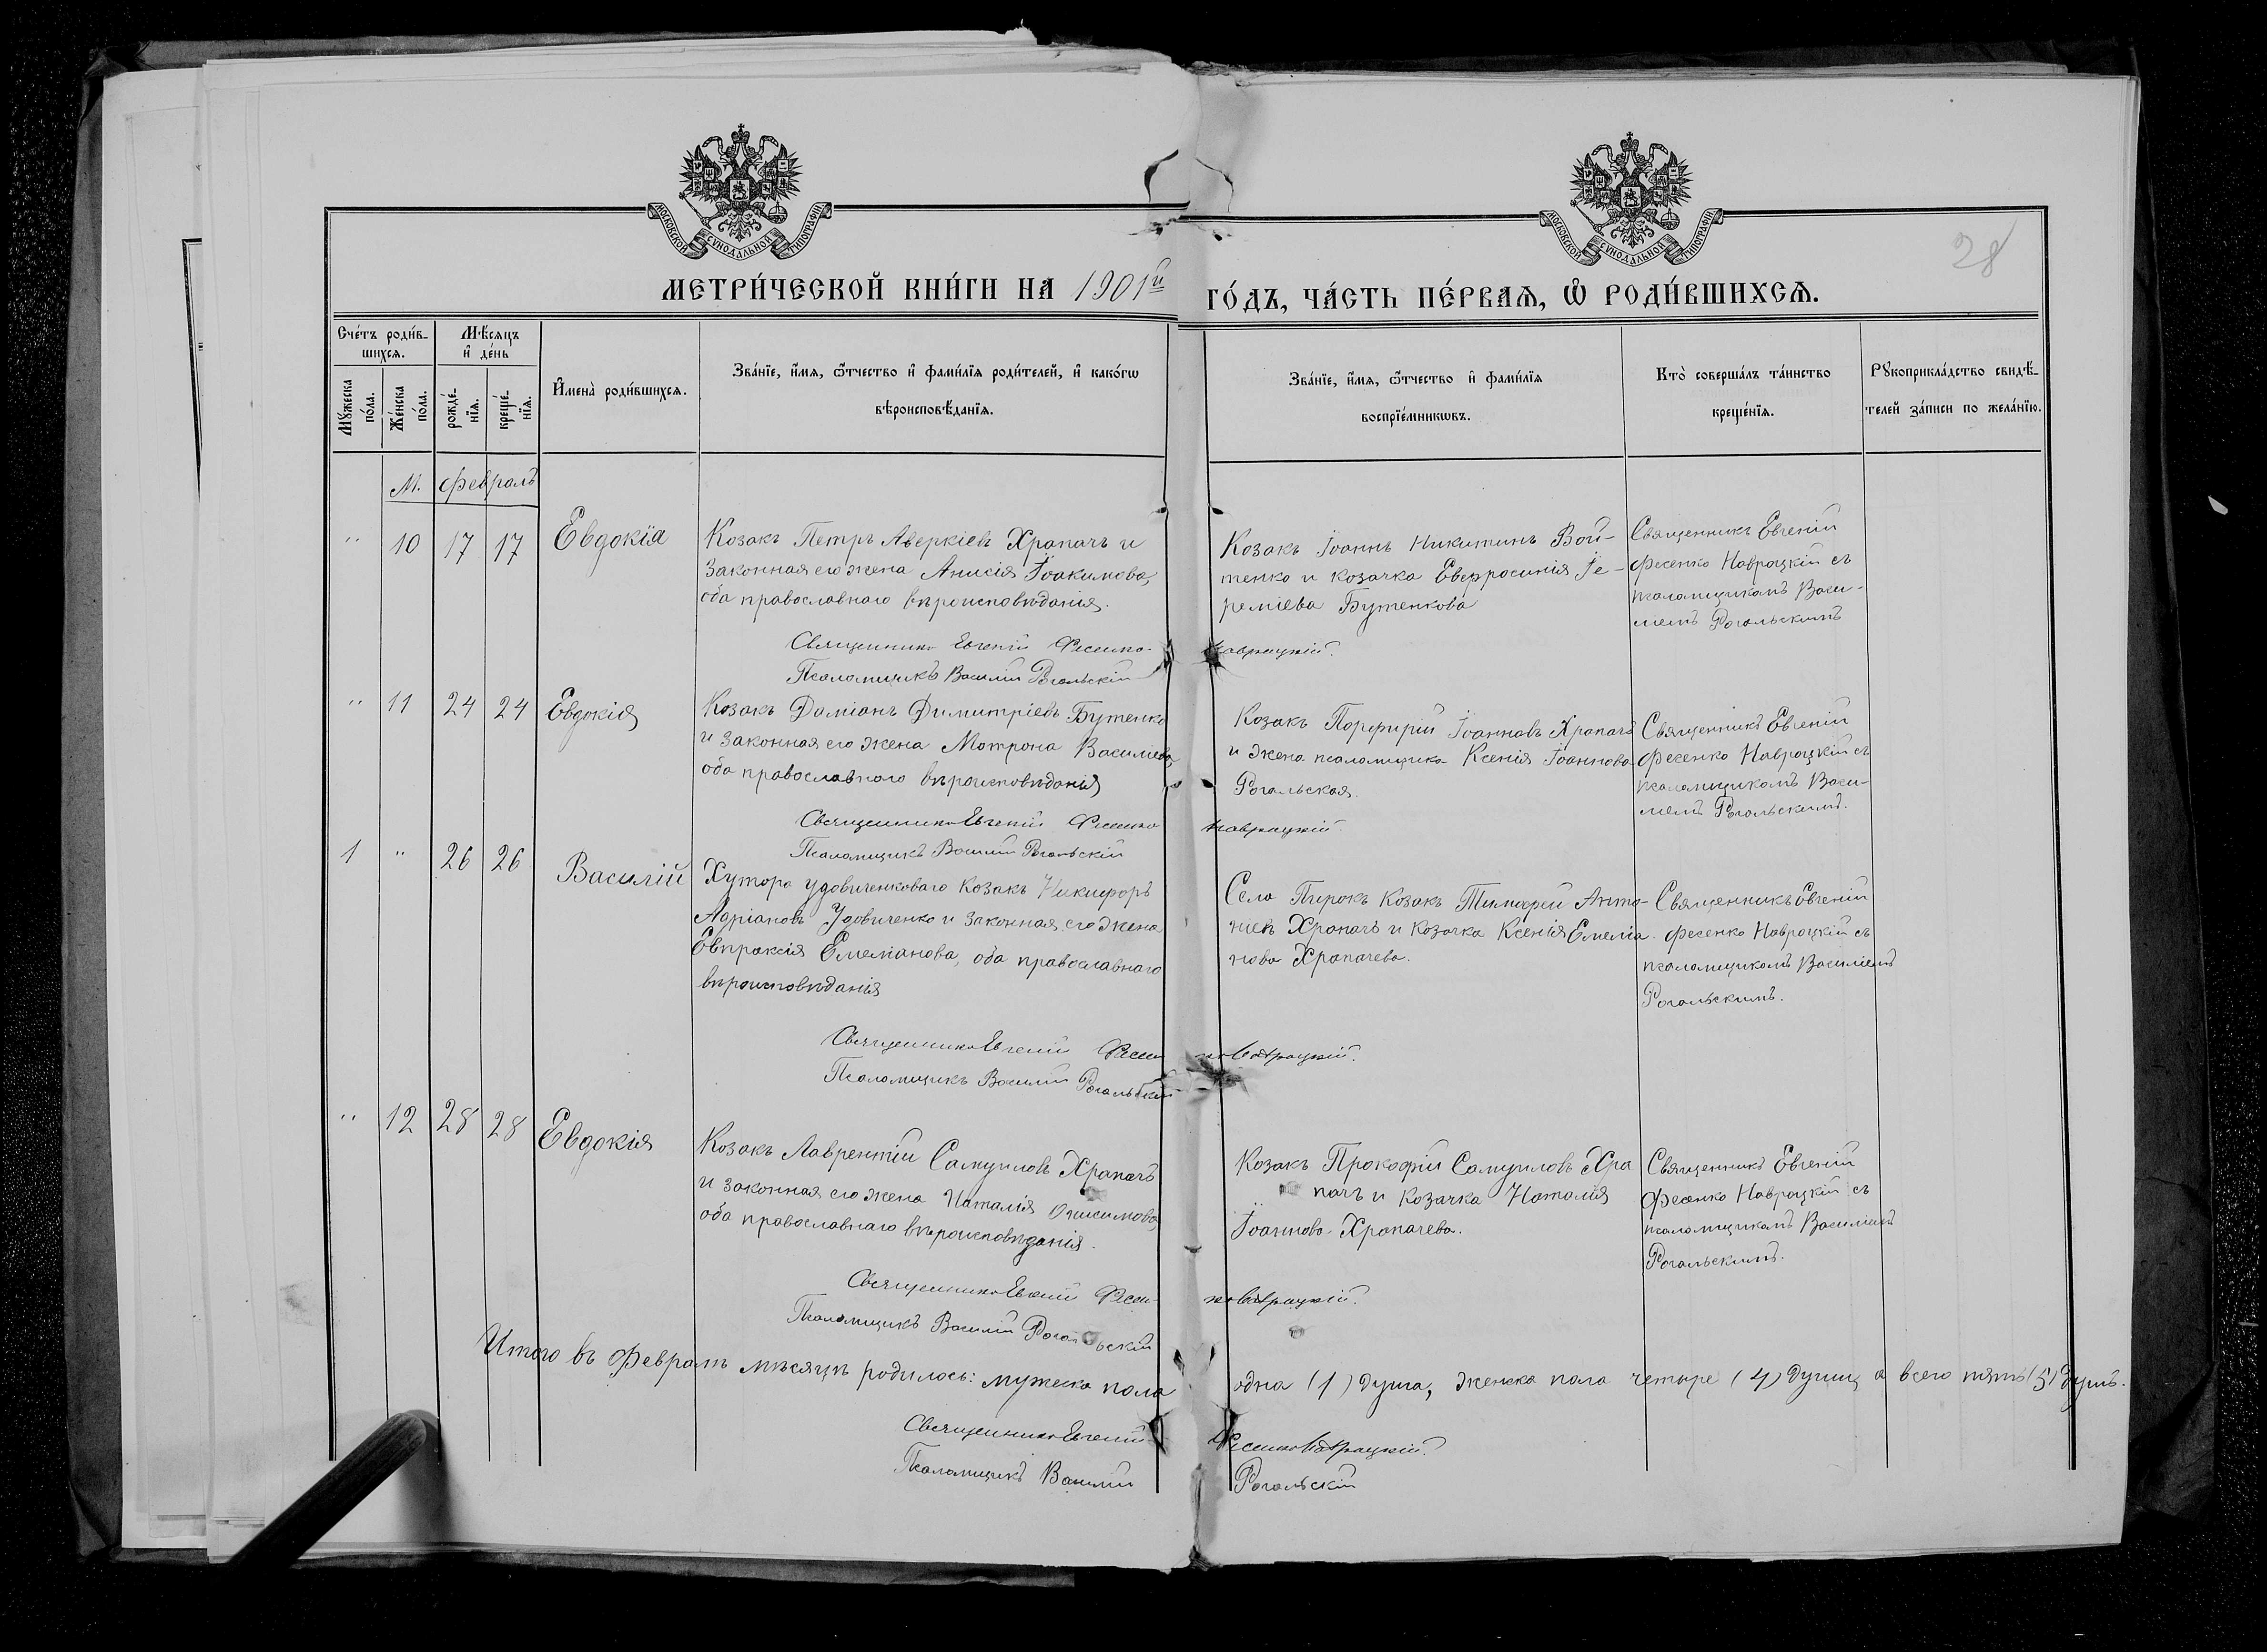 МОСКОВСКОЙ СѴНОДАЛЬНОЙ ТИПОГРАФІИ
МОСКОВСКОЙ СѴНОДАЛЬНОЙ ТИПОГРАФІИ
28
МЕТРИ́ЧЕСКОЙ КНИ́ГИ НА 1901й ГО́ДЪ, ЧА́СТЬ ПЕ́РВАѦ, Ѡ҆ РОДИ́ВШИХСѦ.
Сче́тъ роди́в-
шихсѧ.
Мѣ́сяцъ
и҆ де́нь
Мꙋ́жеска
по́ла.
Же́нска
по́ла.
рожде́-
нїѧ.
креще́-
нїѧ.
И҆мена̀ роди́вшихсѧ.
Зва́нїе, и҆́мѧ, ѻ҆́тчество и҆ фами́лїѧ роди́телей, и҆ како́гѡ
вѣроисповѣ́данїѧ.
Зва́нїе, и҆́мѧ, ѻ҆́тчество и҆ фами́лїѧ
воспрїе́мникѡвъ.
Кто̀ соверша́лъ та́инство
креще́нїѧ.
Рꙋкоприкла́дство свидѣ́-
телей за́писи по жела́нїю.
М. Февраль
" 10 17 17 Евдокія
Козакъ Петръ Аверкіевъ Храпачъ и
законная его жена Анисія Іоакимова,
оба православнаго вѣроисповѣданія.
Козакъ Іоаннъ Никитинъ Вой-
тенко и козачка Евфросинія Іе-
реміева Бутенкова
Священникъ Евгеній
Фесенко Навроцкій съ
псаломщикомъ Васи-
лiемъ Рогальскимъ
Священникъ Евгеній Фесенко-Навроцкій.
Псаломщикъ Василій Рогальскій
" 11 24 24 Евдокія
Козакъ Даміанъ Димитріевъ Бутенко
и законная его жена Мотрона Василиева,
оба православнаго вѣроисповѣданія
Козакъ Порфирій Іоанновъ Храпачъ
и жена псаломщика Ксенія Іоаннова
Рогальская.
Священникъ Евгеній
Фесенко Навроцкій съ
псаломщикомъ Васи-
лiемъ Рогальскимъ.
Священникъ Евгеній Фесенко Навроцкій
Псаломщикъ Василій Рогальскій
1 " 26 26 Василій
Хутора Удовиченковаго козакъ Никифоръ
Адріановъ Удовиченко и законная его жена
Евпраксія Емеліанова, оба православнаго
вѣроисповѣданія
Села Пирокъ козакъ Тимофей Анто-
ніевъ Храпачъ и козачка Ксенія Емеліа-
нова Храпачева.
Священникъ Евгеній
Фесенко Навроцкій съ
псаломщикомъ Василіемъ
Рогальскимъ.
Священникъ Евгеній Фесенко Навроцкій.
Псаломщикъ Василій Рогальскій
" 12 28 28 Евдокія
Козакъ Лаврентій Самуиловъ Храпачъ
и законная его жена Наталія Онисимова,
оба православнаго вѣроисповѣданія.
Козакъ Прокофій Самуиловъ Хра
пачъ и козачка Наталія
Іоаннова Храпачева.
Священникъ Евгеній
Фесенко Навроцкій съ
псаломщикомъ Василіемъ
Рогальскимъ.
Священникъ Евгеній Фесенко Навроцкій.
Псаломщикъ Василій Рогальскій
Итого въ Февралѣ мѣсяцѣ родилось: мужеска пола одна (1) душа, женска пола четыре (4) души, а всего пять (5) душъ.
Священникъ Евгеній Фесенко Навроцкій.
Псаломщикъ Василій Рогальскій